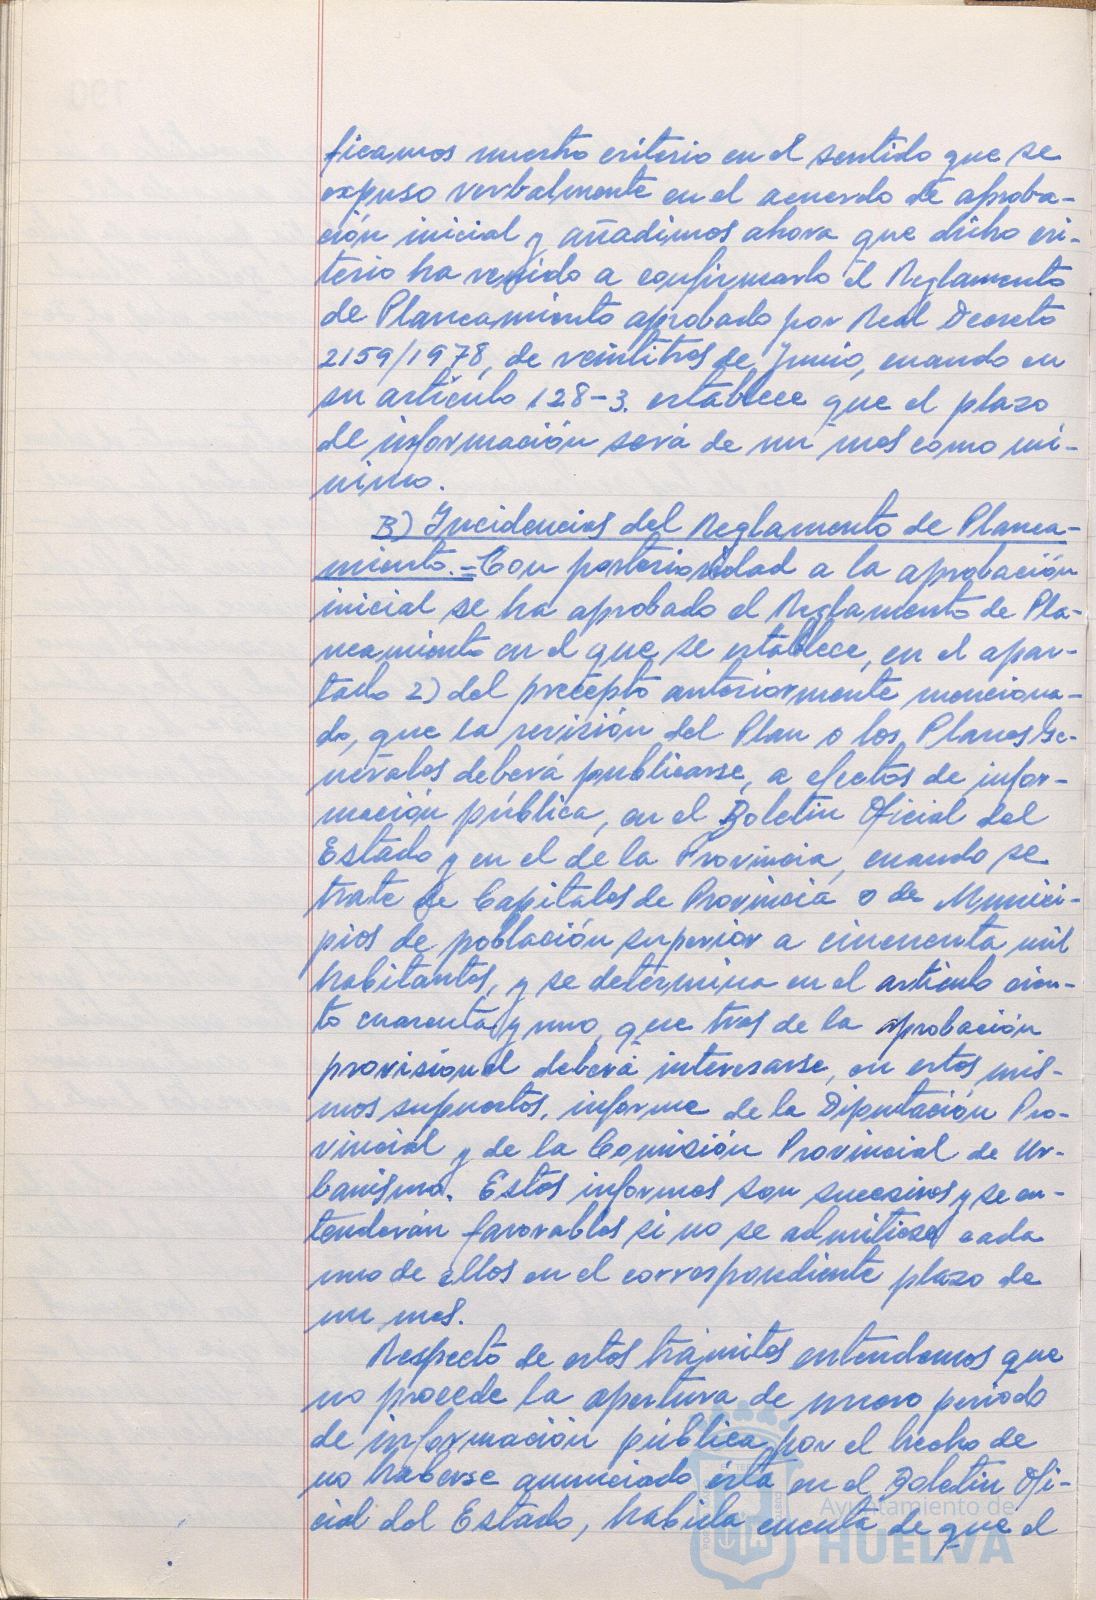 ficamos nuestro criterio en el sentido que se
expuso verbalmente en el acuerdo de aproba-
ción inicial y añadimos ahora que dicho cri-
terio ha venido a confirmarlo el Reglamento
de Planeamiento aprobado por Real Decreto
2159/1978, de veintitres de Junio, cuando en
su artículo 128-3. establece que el plazo
de información será de un mes como mí-
nimo.
B) Incidencias del Reglamento de Planea-
miento.=Con posterioridad a la aprobación
inicial se ha aprobado el Reglamento de Pla-
neamiento en el que se establece, en el apar-
tado 2) del precepto anteriormente menciona-
do, que la revisión del Plan o los Planes Ge-
nerales deberá publicarse, a efectos de infor-
mación pública, en el Boletín Oficial del
Estado y en el de la Provincia, cuando se
trate de Capitales de Provincia o de Munici-
pios de población superior a cincuenta mil
habitantes, y se determina en el artículo cien-
to cuarenta y uno, que tras de la aprobación
provisional deberá interesarse, en estos mis-
mos supuestos, informe de la Diputación Pro-
vincial y de la Comisión Provincial de Ur-
banismo. Estos informes son sucesivos y se en-
tenderán favorables si no se admitiese cada
uno de ellos en el correspondiente plazo de
un mes.
Respecto de estos trámites entendemos que
no procede la apertura de nuevo periodo
de información pública por el hecho de
no haberse anunciado ésta en el Boletín Ofi-
cial del Estado, habida cuenta de que el
Ayuntamiento de
HUELVA